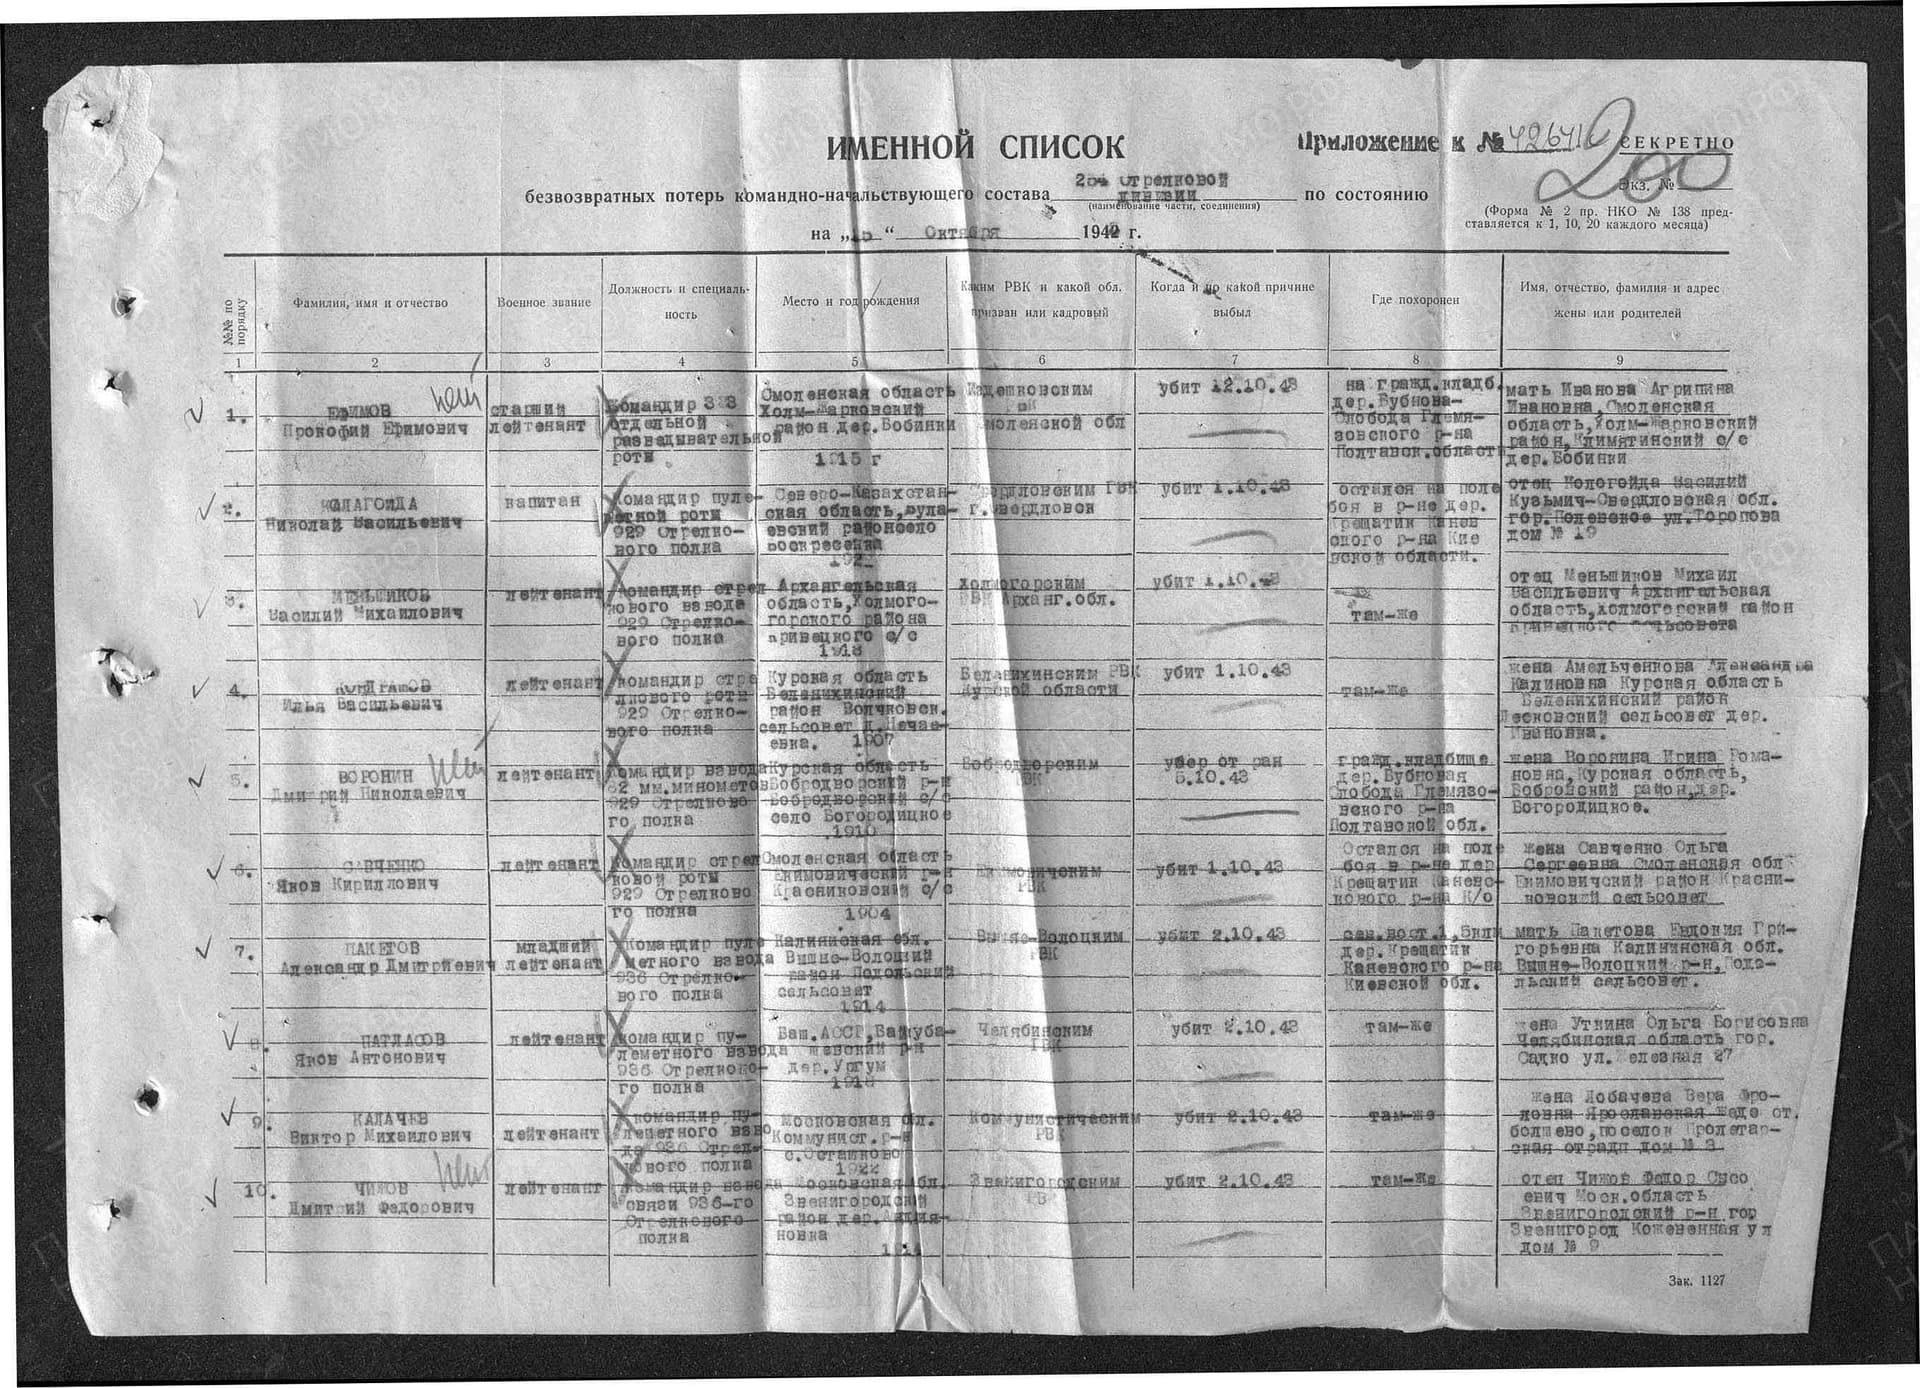 ИМЕННОЙ СПИСОК
Приложение к №
СЕКРЕТНО
200
Экз. №
безвозвратных потерь командно-начальствующего состава 254 стрелковой дивизии по состоянию
(наименование части, соединения)
на „15“ Октября 1942 г.
(Форма № 2 пр. НКО № 138 пред-
ставляется к 1, 10, 20 каждого месяца)
№№ по порядку
Фамилия, имя и отчество
Военное звание
Должность и специаль-
ность
Место и год рождения
Каким РВК и какой обл.
призван или кадровый
Когда и по какой причине
выбыл
Где похоронен
Имя, отчество, фамилия и адрес
жены или родителей
1 2 3 4 5 6 7 8 9
1.
ЕФИМОВ
Прокофий Ефимович
старший
лейтенант
Командир 333
отдельной
разведывательной
роты
Смоленская область
Холм-Жарковский
район дер.Бобинки
1915 г
Издешковским
Смоленской обл
убит 12.10.43
на гражд.кладб.
дер.Бубнова-
Слобода Глемя-
зовского р-на
Полтавск.области
мать Иванова Агрипина
Ивановна,Смоленская
область,Холм-Жарковский
район,Климятинский с/с
дер.Бобинки
2.
Николай Васильевич
капитан
Командир пуле-
метной роты
929 Стрелко-
вого полка
Северо-Казахстан-
ская область,Була-
евский районсело
Воскресенка
Свердловским ГВК
г.Свердловск
убит 1.10.43
остался на поле
боя в р-не дер.
Крещатик Канев
ского р-на Кие
вской области.
отец Кологойда Василий
Кузьмич-Свердловская обл.
гор.Полевское ул.Торопова
дом № 19
3.
МЕНЬШИКОВ
Василий Михайлович
лейтенант
Командир стрел
кового взвода
929 Стрелко-
вого полка
Архангельская
область,Холмого-
горского района
кривецкого с/с
1918
Холмогорским
РВК Арханг.обл.
убит 1.10.43
там-же
отец Меньшиков Михаил
Васильевич Архангельская
область,холмогорский район
кривецкого сельсовета
4.
КОНДРАШОВ
Илья Васильевич
лейтенант
командир стре
лкового роты
929 Стрелко-
вого полка
Курская область
Беленихинский
район Волчковск.
сельсовет д.Нечае-
евка. 1907
Беленихинским РВК
Курской области
убит 1.10.43
там-же
жена Амельченкова Александра
Калиновна Курская область
Беленихинский район
Песковский сельсовет дер.
Ивановка.
5.
ВОРОНИН
Дмитрий Николаевич
лейтенант
Командир взвода
82 мм.минометов
929 Стрелково
го полка
Курская область
Бобродворский р-н
Бобродворский с/с
село Богородицкое
1910
Бобродворским
РВК
умер от ран
5.10.43
гражд.кладбище
дер.Бубновая
Слобода Глемязо-
вского р-на
Полтавской обл.
жена Воронина Ирина Рома-
новна,Курская область,
Бобровский район,дер.
Богородицкое.
6.
САВЧЕНКО
Яков Кириллович
лейтенант
Командир стрел
ковой роты
929 Стрелково
го полка
Смоленская область
Екимовический р-н
Красниковский с/с
1904
Екимовичским
РВК
убит 1.10.43
Остался на поле
боя в р-не дер
Крещатик Каневс-
кового р-на К/о
жена Савченко Ольга
Сергеевна Смоленская обл
Екимовичский район Красни-
ковский сельсовет
7.
ПАКЕТОВ
Александр Дмитриевич
младший
лейтенант
Командир пуле
метного взвода
936 Стрелко-
вого полка
Калининская обл.
Вышне-Волоцкий
район Подольский
сельсовет
1914
Вышне-Волоцким
РВК
убит 2.10.43
сев.вост.1,5клм
дер.Крещатик
Каневского р-на
Киевской обл.
мать Пакетова Евдокия Гри-
горьевна Калининская обл.
Вышне-Волоцкий р-н,Подо-
льский сельсовет.
8.
ПАТЛАСОВ
Яков Антонович
лейтенант
Командир пу-
леметного взвода
936 Стрелково-
го полка
Баш.АССР,
дер.Ургум
1918
Челябинским
ГВК
убит 2.10.43
там-же
жена Уткина Ольга Борисовна
Челябинская область гор.
Садко ул.Железная 27
9.
КАЛАЧЕВ
Виктор Михайлович
лейтенант
командир пу-
леметного взво
да 936 Стрел-
кового полка
Московская обл.
Коммунист.р-н
с.Осташково
1922
Коммунистическим
РВК
убит 2.10.43
там-же
жена Лобачева Вера Фро-
ловна Ярославская жедо ст.
болшево,поселок Пролетар-
ская отрада дом № 3
10.
ЧИЖОВ
Дмитрий Федорович
лейтенант
Командир взвода
связи 936-го
Стрелкового
полка
Московская обл.
Звенигородский
район дер.
новка
Звенигородским
РВК
убит 2.10.43
там-же
отец Чижов Федор Сысо
евич Моск.область
Звенигородский р-н гор
Звенигород Кожевенная ул
дом № 9
Зак. 1127